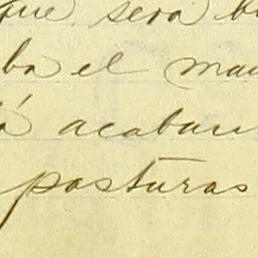 que sera b
ba el mau
á acaban
posturas